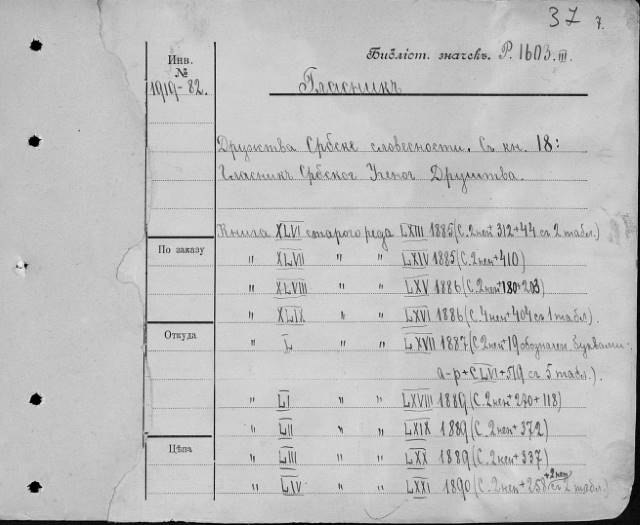 37 7.
Библіот. значекъ. Р. 1603.III.
Инв.
№
1919-82.
Гласникъ
Дружства Србске словесности. Съ кн. 18:
Гласник Србског Ученог Друштва.
Книга XLVI старого реда LXIII 1885 (С. 2 нен + 312 + 44 съ 2 табл.)
По заказу
" XLVII " " LXIV 1885 (С. 2 нен + 410)
" XLVIII " " LXV 1886 (С. 2 нен + 180 + 203)
" XLIX " " LXVI 1886 (С. 4 нен + 404 съ 1 табл).
Откуда
" L " " LXVII 1887 (С. 2 нен + 19 обозначен. буквами
а-р + CLVI + 519 съ 5 табл.).
" LI " " LXVIII 1889 (С. 2 нен + 290 + 118)
" LII " " LXIX 1889 (С. 2 нен + 372)
Цѣна
" LIII " " LXX 1889 (С. 2 нен + 337)
" LIV " " LXXI 1890 (С. 2 нен + 258 + 2 нен съ 2 табл.)